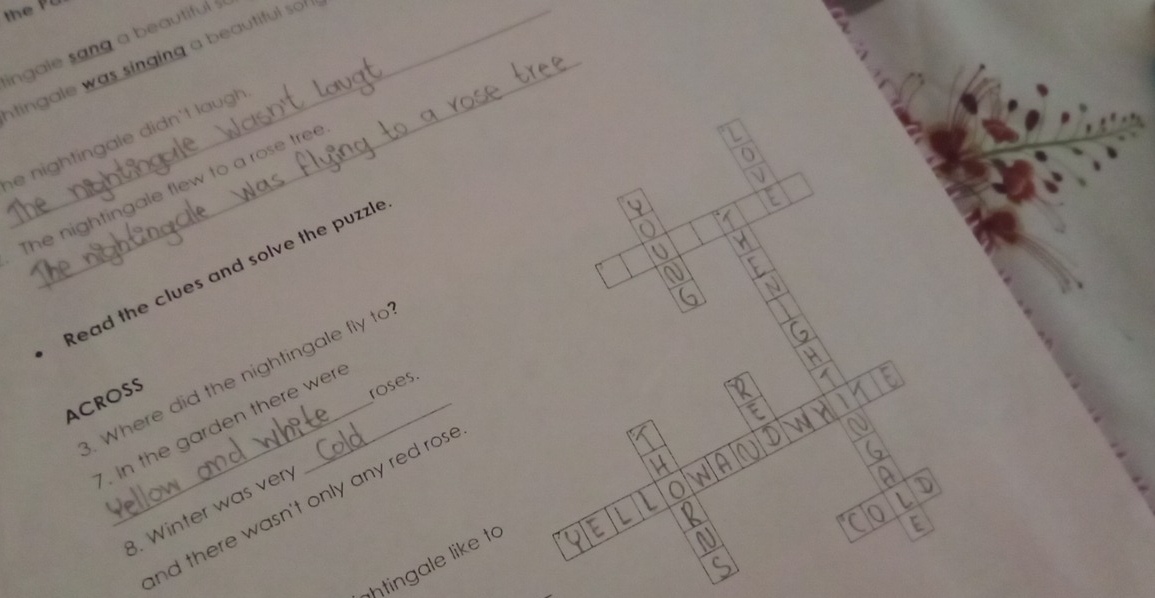 the
ingale sang a beautiful
htingale was singing a beautiful song
he nightingale didn't laugh.
The nightingale wasn't laugt
The nightingale flew to a rose tree.
The nightingale was flying to a rose tree
• Read the clues and solve the puzzle.
ACROSS
3. Where did the nightingale fly to?
7. In the garden there were
Yellow and white roses.
8. Winter was very Cold
and there wasn't only any red rose.
ghtingale like to
LOVE
YOUNG
THENIGHTINGALE
RED
THORNS
YELLOWANDWHITE
COLD